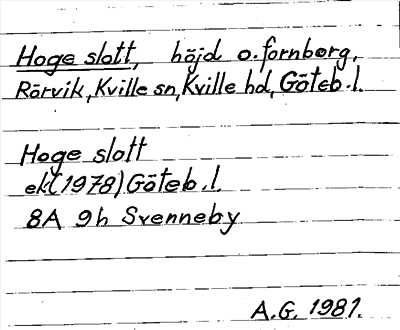 Hoge slott, höjd o. fornborg,
Rörvik, Kville sn, Kville hd, Göteb. l.
Hoge slott
ek (1978) Göteb. l.
8A 9h Svenneby
A.G. 1981.